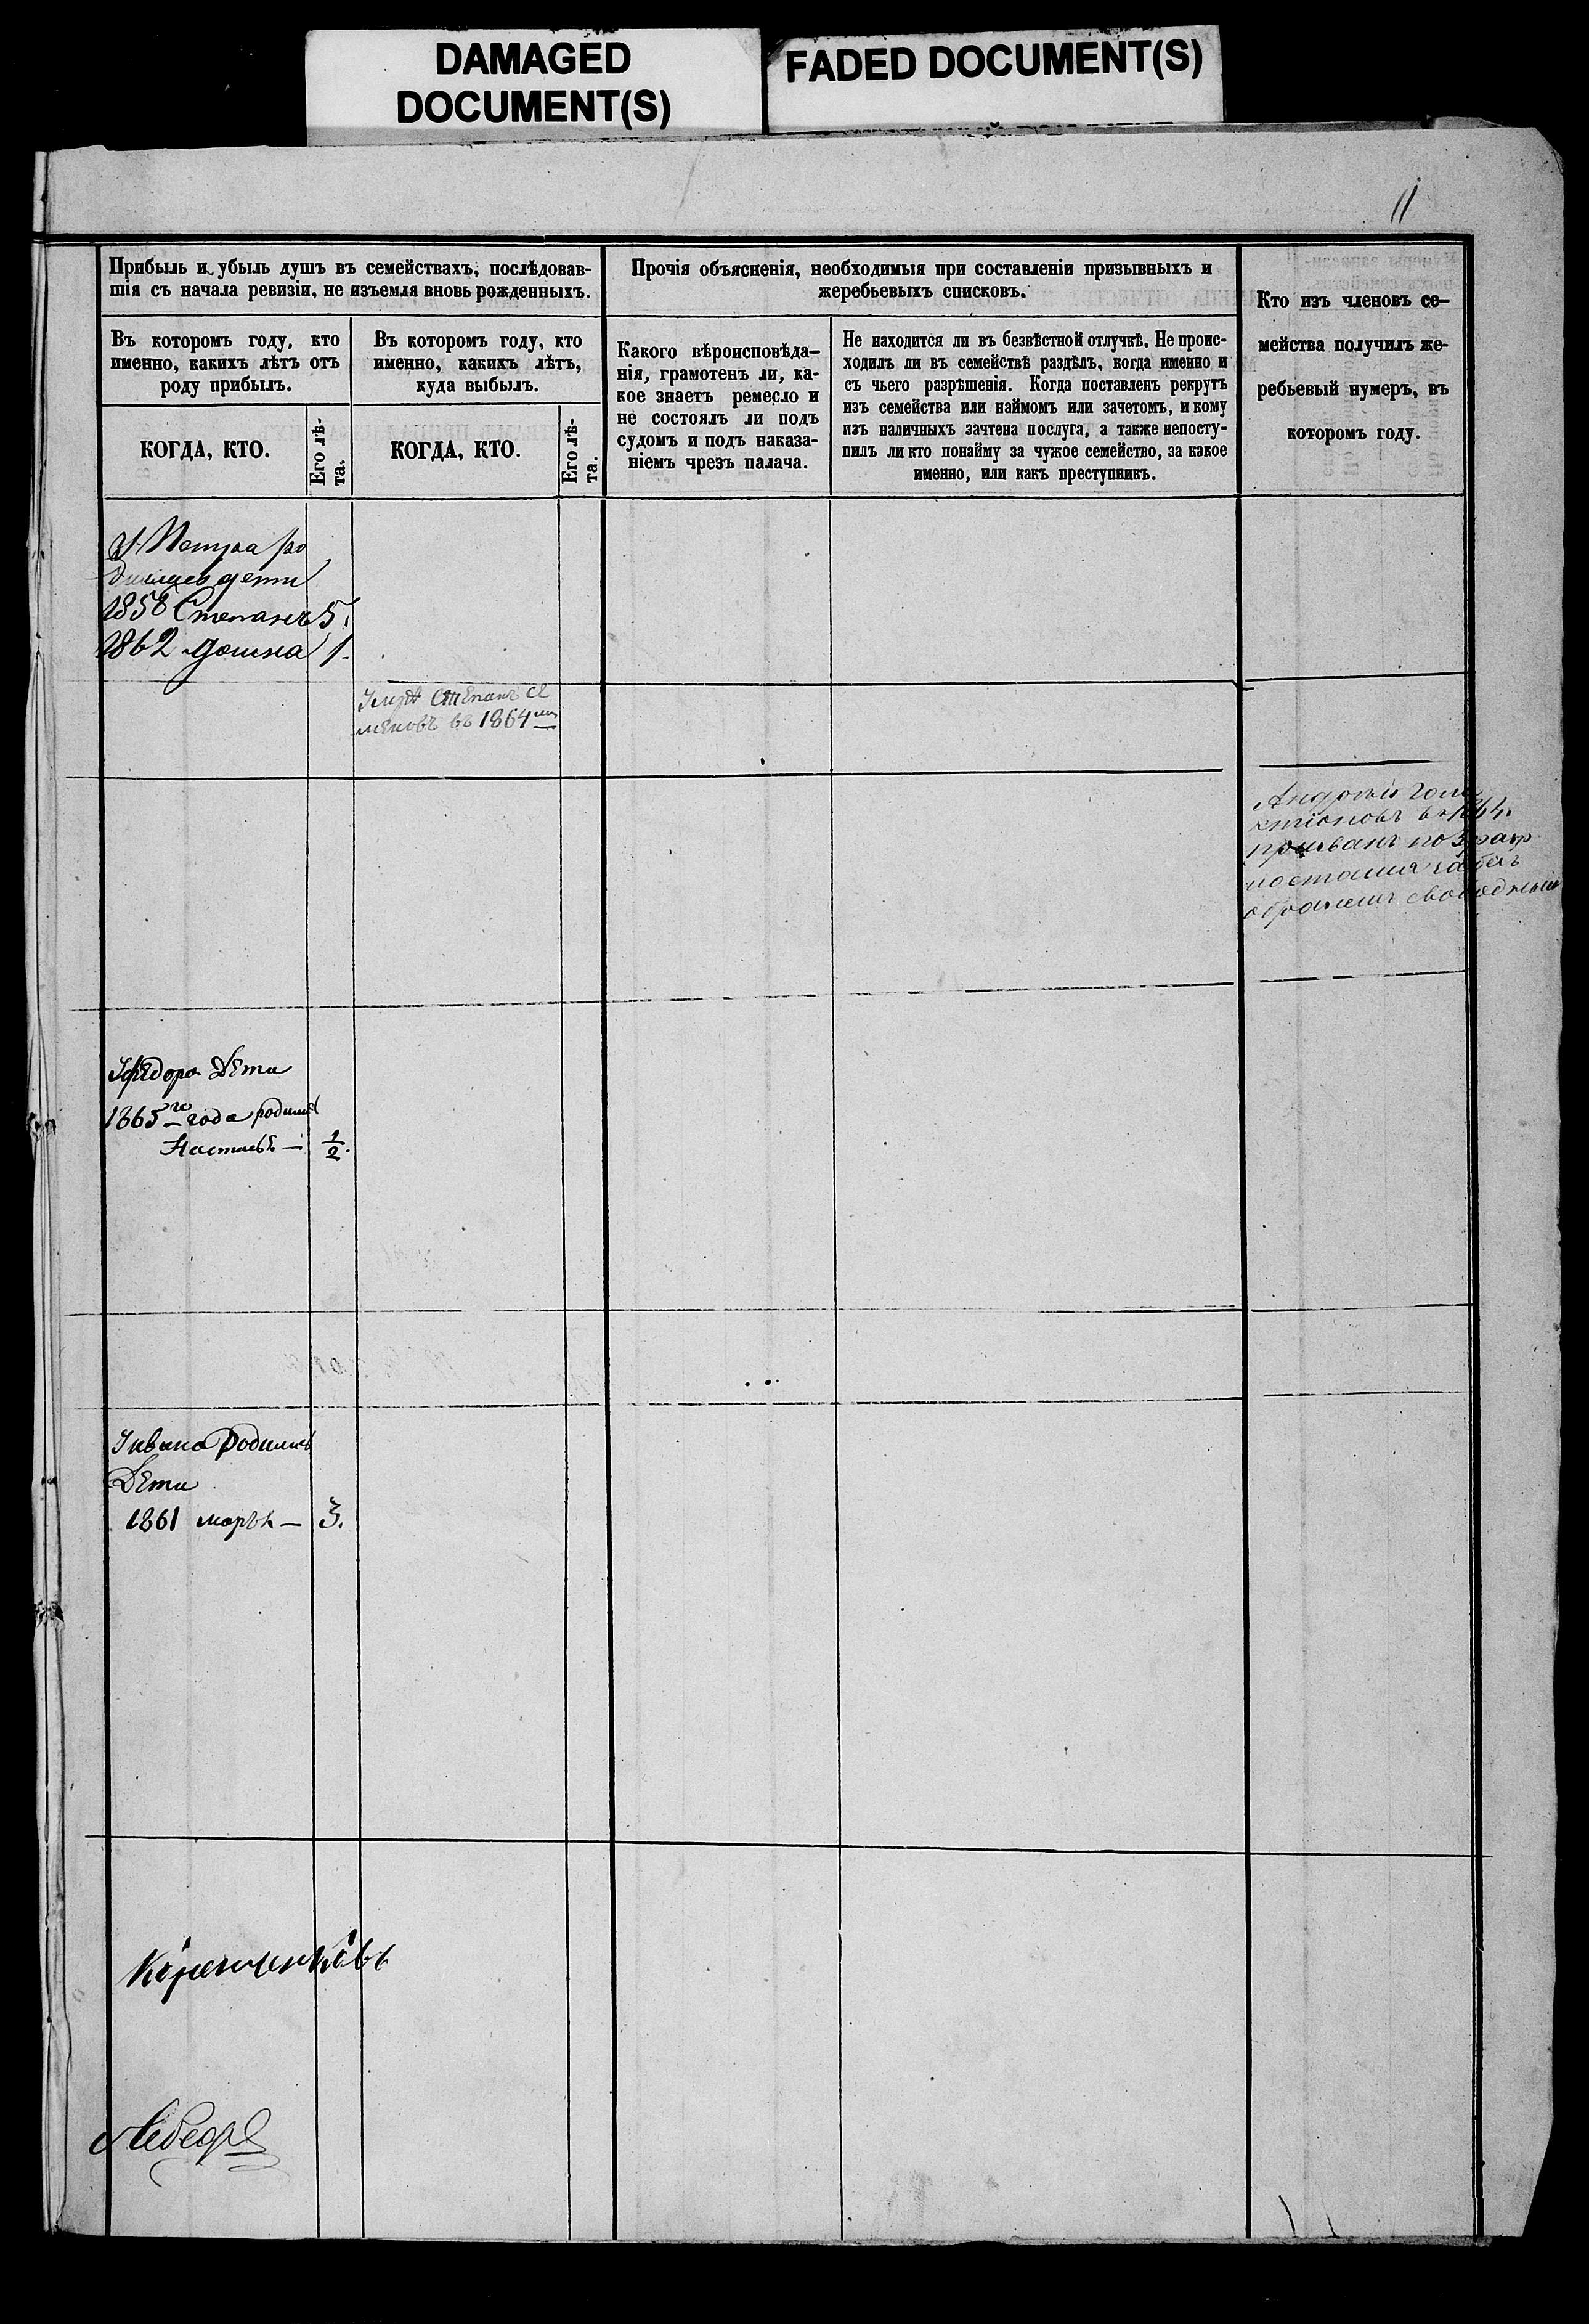 DAMAGED
DOCUMENT(S)
FADED DOCUMENT(S)
11
Прибыль и убыль душъ въ семействахъ, послѣдовав-
шія съ начала ревизіи, не изъемля вновь рожденныхъ.
Въ которомъ году, кто
именно, какихъ лѣтъ отъ
роду прибылъ.
КОГДА, КТО.
Его лѣ-
та.
Въ которомъ году, кто
именно, какихъ лѣтъ,
куда выбылъ.
КОГДА, КТО.
Его лѣ-
та.
Прочія объясненія, необходимыя при составленіи призывныхъ и
жеребьевыхъ списковъ.
Какого вѣроисповѣда-
нія, грамотенъ ли, ка-
кое знаетъ ремесло и
не состоялъ ли подъ
судомъ и подъ наказа-
ніемъ чрезъ палача.
Не находится ли въ безвѣстной отлучкѣ. Не проис-
ходилъ ли въ семействѣ раздѣлъ, когда именно и
съ чьего разрѣшенія. Когда поставленъ рекрутъ
изъ семейства или наймомъ или зачетомъ, и кому
изъ наличныхъ зачтена послуга, а также непосту-
пилъ ли кто понайму за чужое семейство, за какое
именно, или какъ преступникъ.
Кто изъ членовъ се-
мейства получилъ же-
ребьевый нумеръ, въ
которомъ году.
У Петра ро
дились дети
1858 Степанъ 5.
1862 домна 1.
Умръ Степанъ се
меновъ въ 1864 мъ
Андрей
въ 1864.
призванъ по 3
Уфедора Дети
1865 го года родилась
Настась — 1/2.
Уивана Родились
Дети
1861 — 3.